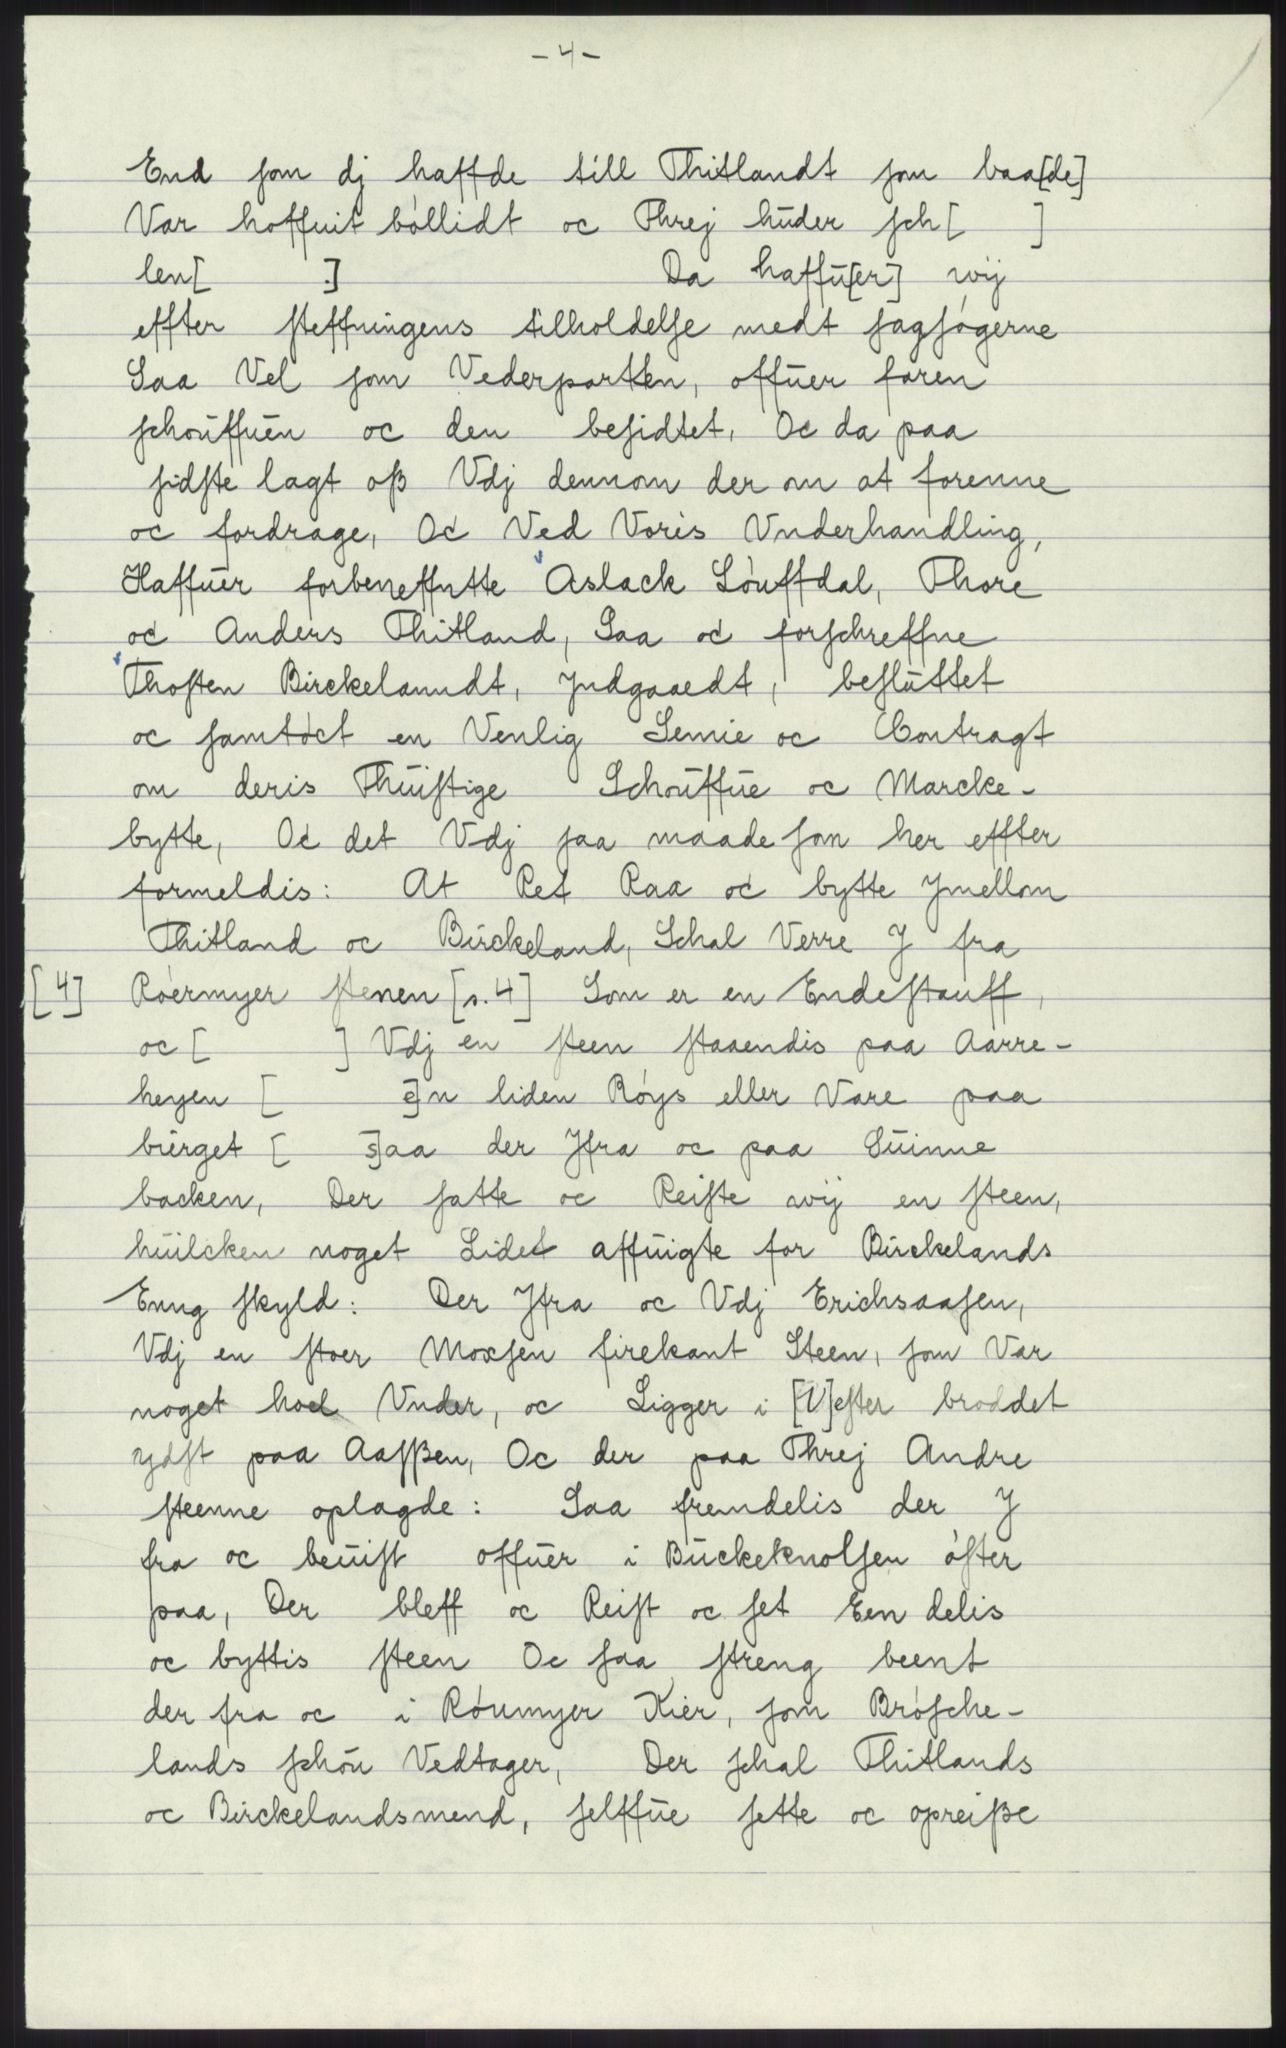 - 4 -
End som dj haffde till Thitlandt som baa[de]
Var hoffuit bøllidt oc Threj huder sch[ ]
len[ .] Da haffu[er] wij
effter steffningens tilholdelse medt sagsøgerne
Saa Vel som Vederparten, offuer faren
schouffuen oc den besidtet, Oc da paa
sidste lagt oß Vdj dennom der om at forenne
oc fordrage, Oc Ved Voris Vnderhandling,
Haffuer forbeneffntte Aslack Løuffdal, Thore
oc Anders Thitland, Saa oc forschreffne
Thosten Birckelanndt, Jndgaaedt, besluttet
oc samtøct en Venlig Semie oc Contragt
om deris Thuistige Schouffue oc Marcke-
bytte, Oc det Vdj saa maade som her effter
formeldis: At Ret Raa oc bytte Jmellom
Thitland oc Birckeland, Schal Verre J fra
[4] Røermyer stenen [s. 4] Som er en Endestauff,
oc [ ] Vdj en steen staaendis paa Aarre-
heyen [ e]n liden Røys eller Vare paa
bierget [ s]aa der Jfra oc paa Suinne
backen, Der satte oc Reiste wij en steen,
huilcken noget Lidet affuigte for Birckelands
Enng skyld: Der Jfra oc Vdj Erichsaasen,
Vdj en stoer Moxsen firekant Steen, som Var
noget hoel Vnder, oc Ligger i [V]ester broddet
ydst paa Aasßen, Oc der paa Threj Andre
steenne oplagde: Saa fremdelis der J
fra oc beuist offuer i Buckeknolsen øster
paa, Der bleff oc Reist oc set Een delis
oc byttis steen Oc saa streng beent
der fra oc i Røumyer Kier, som Brøsche-
lands schou Vedtager, Der schal Thitlands
oc Birckelandsmend, selffue sette oc opreiße